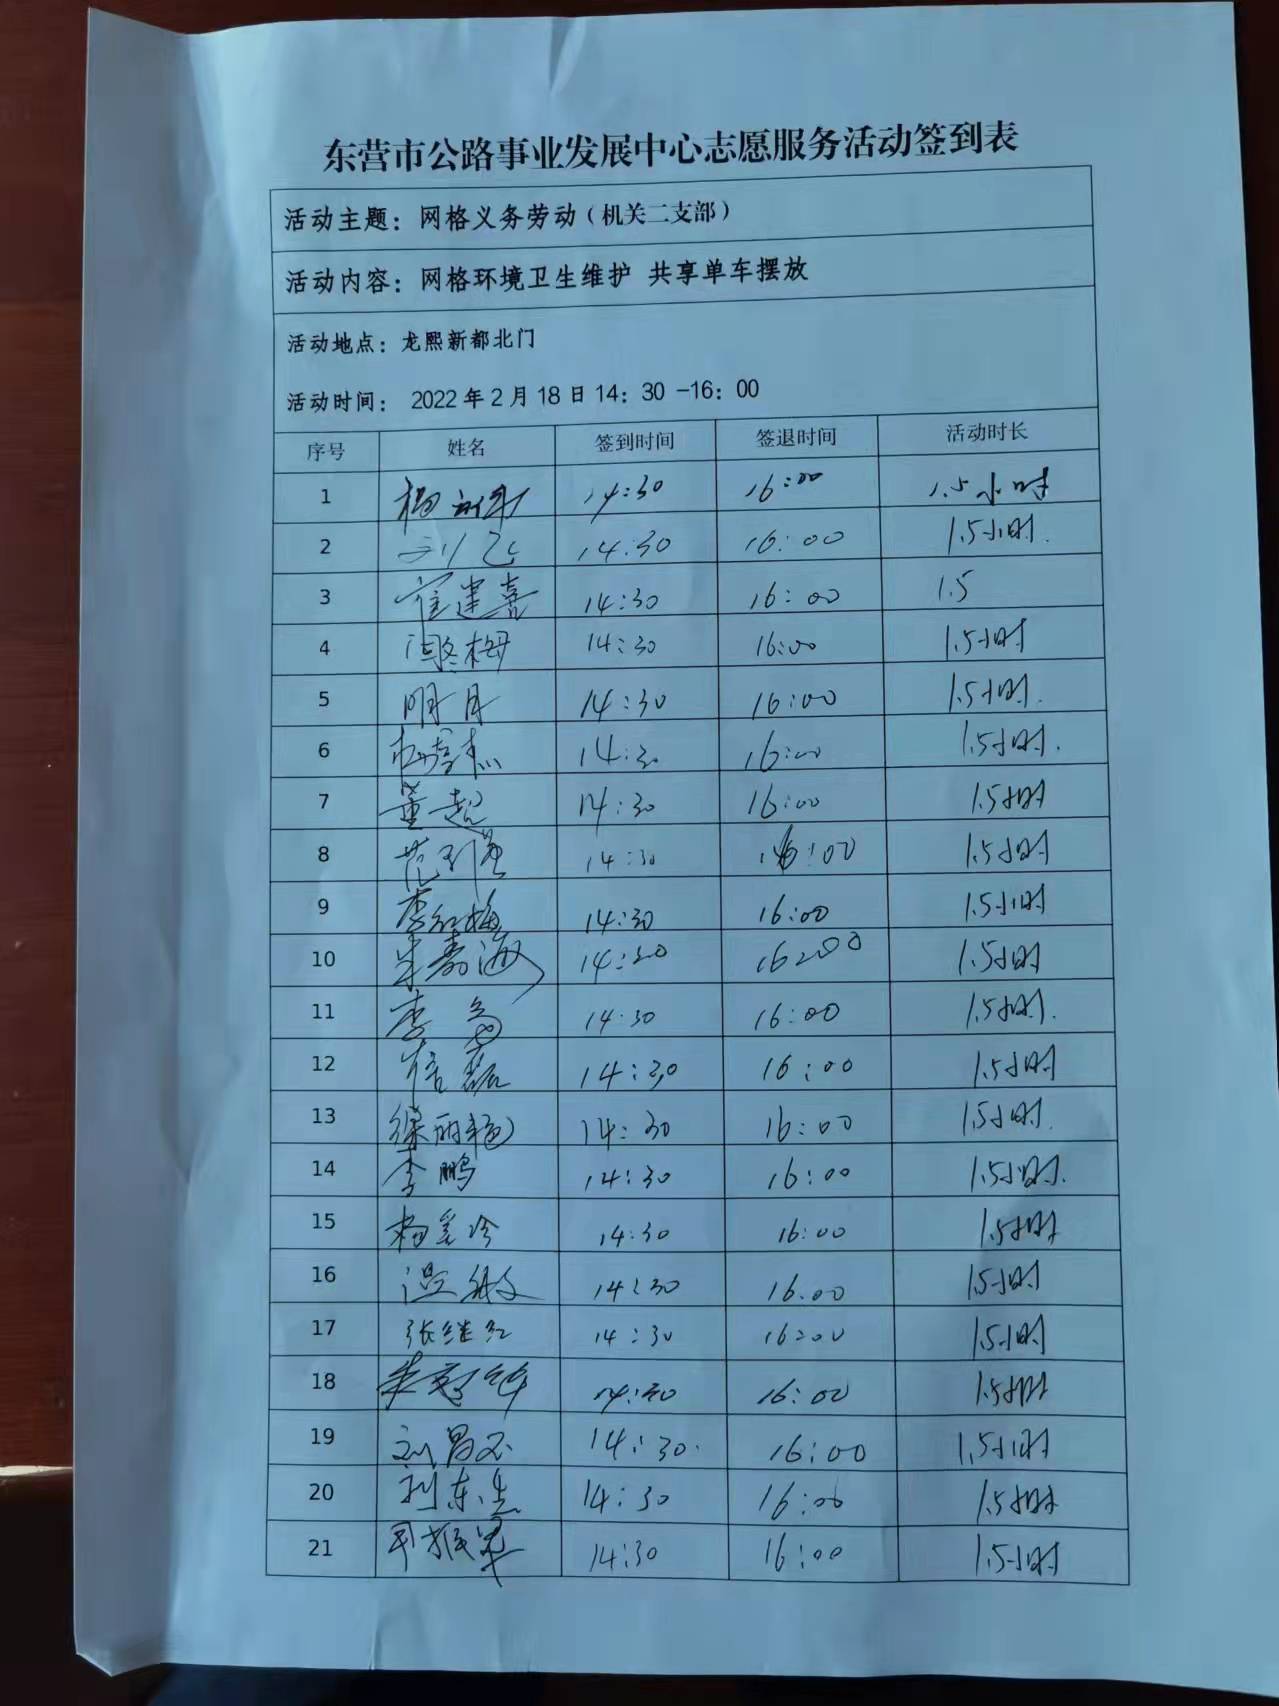 东营市公路事业发展中心志愿服务活动签到表
活动主题：网格义务劳动（机关二支部）
活动内容：网格环境卫生维护 共享单车摆放
活动地点：龙熙新都北门
活动时间： 2022年2月18日14：30-16：00
序号 姓名 签到时间 签退时间 活动时长
1 14:30 16:00 1.5小时
2 14:30 16:00 1.5小时.
3 崔建喜 14:30 16:00 1.5
4 闫冬梅 14:30 16:00 1.5小时
5 明月 14:30 16:00 1.5小时.
6 14:30 16:00 1.5小时.
7 董超 14:30 16:00 1.5小时
8 14:30 16:00 1.5小时
9 李红梅 14:30 16:00 1.5小时
10 14:30 16:00 1.5小时
11 14:30 16:00 1.5小时.
12 14:30 16:00 1.5小时
13 徐丽艳 14:30 16:00 1.5小时.
14 李鹏 14:30 16:00 1.5小时.
15 14:30 16:00 1.5小时
16 温敏 14:30 16:00 1.5小时
17 张继红 14:30 16:00 1.5小时
18 14:30 16:00 1.5小时
19 14:30. 16:00 1.5小时
20 刘东生 14:30 16:00 1.5小时
21 14:30 16:00 1.5小时